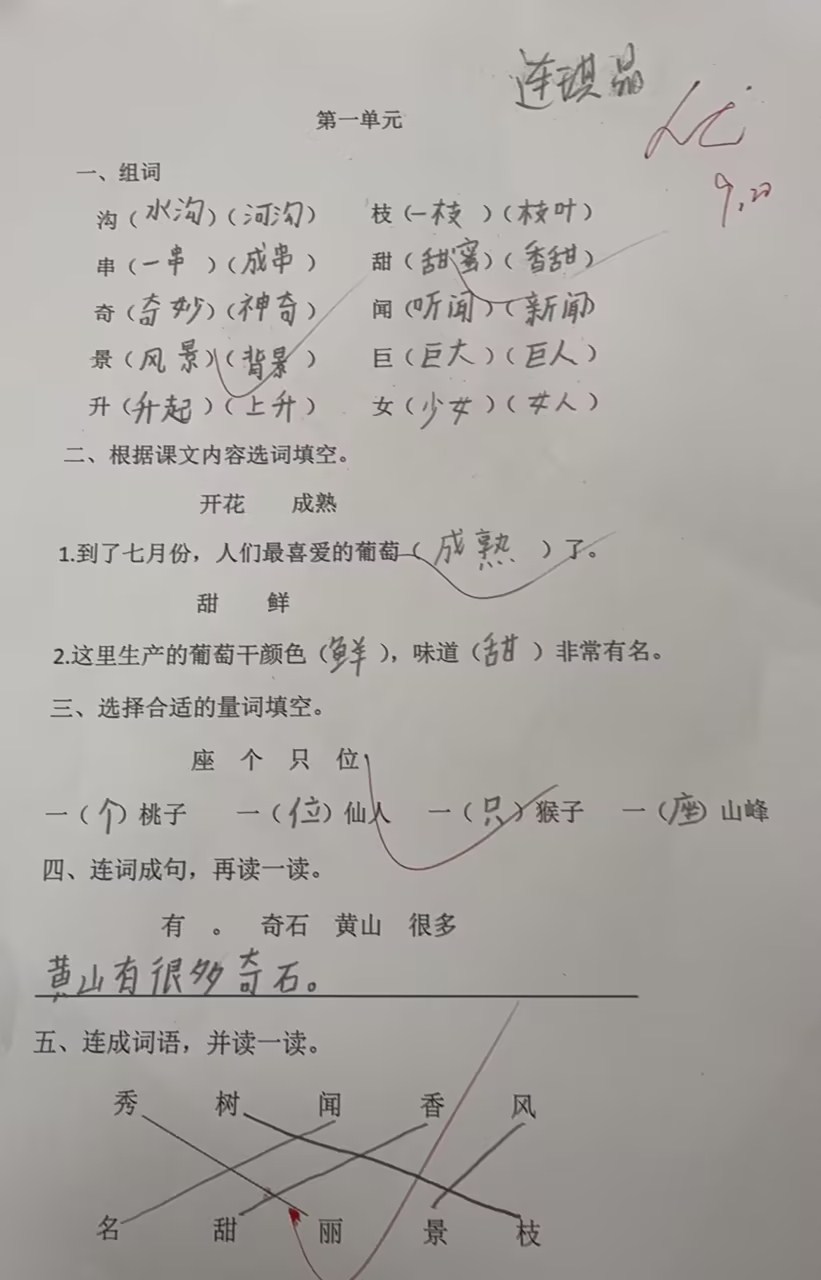 连琪晶
第一单元
优
9.20
一、组词
沟（水沟）（河沟） 枝（一枝）（枝叶）
串（一串）（成串） 甜（甜蜜）（香甜）
奇（奇妙）（神奇） 闻（听闻）（新闻）
景（风景）（背景） 巨（巨大）（巨人）
升（升起）（上升） 女（少女）（女人）
二、根据课文内容选词填空。
开花 成熟
1.到了七月份，人们最喜爱的葡萄（成熟）了。
甜 鲜
2.这里生产的葡萄干颜色（鲜），味道（甜）非常有名。
三、选择合适的量词填空。
座 个 只 位
一（个）桃子 一（位）仙人 一（只）猴子 一（座）山峰
四、连词成句，再读一读。
有 。 奇石 黄山 很多
黄山有很多奇石。
五、连成词语，并读一读。
秀 树 闻 香 风
名 甜 丽 景 枝